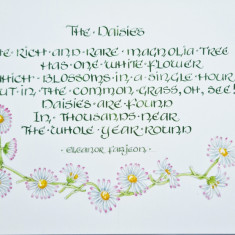 The Daisies
he rich and rare magnolia tree
Has one white flower
hich blossoms in a single hour
ut in the common grass, oh, see!
Daisies are found
In thousands near
The whole year round
Eleanor Farjeon